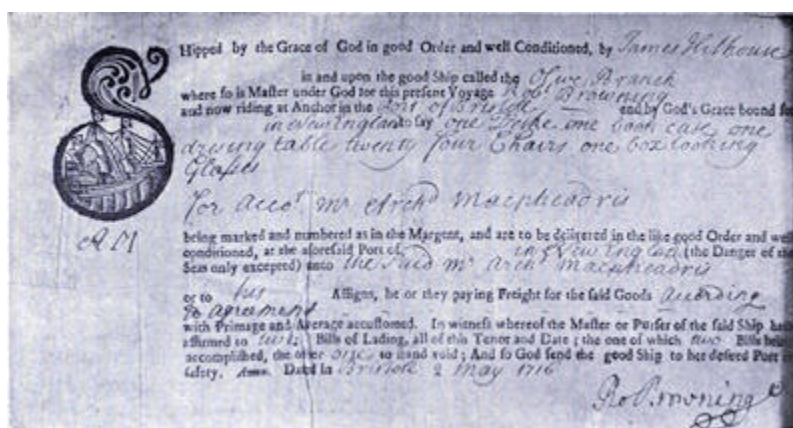 Shipped by the Grace of God in good Order and well Conditioned, by James Hilhouse
in and upon the good Ship called the Olive Branch
where so is Master under God for this present Voyage Robt Browning
and now riding at Anchor in the Port of Bristole and by God's Grace bound for
in New England to say one one book case one
table twenty four Chairs one box looking
Glasses
for Accot. Mr Archd Macpheadris
AM
being marked and numbered as in the Margent, and are to be delivered in the like good Order and well
conditioned, at the aforesaid Port of in New England (the Danger of the
Seas only excepted) unto the said Mr Archd Macpheadris
or to his Assigns, he or they paying Freight for the said Goods according
to agreement
with Primage and Average accustomed. In witness whereof the Master or Purser of the said Ship hath
affirmed to Bills of Lading, all of this Tenor and Date; the one of which two Bills being
accomplished, the other one to stand void; And so God send the good Ship to her desired Port in
safety. Amen. Dated in Bristole 2 May 1716
Ro Browning